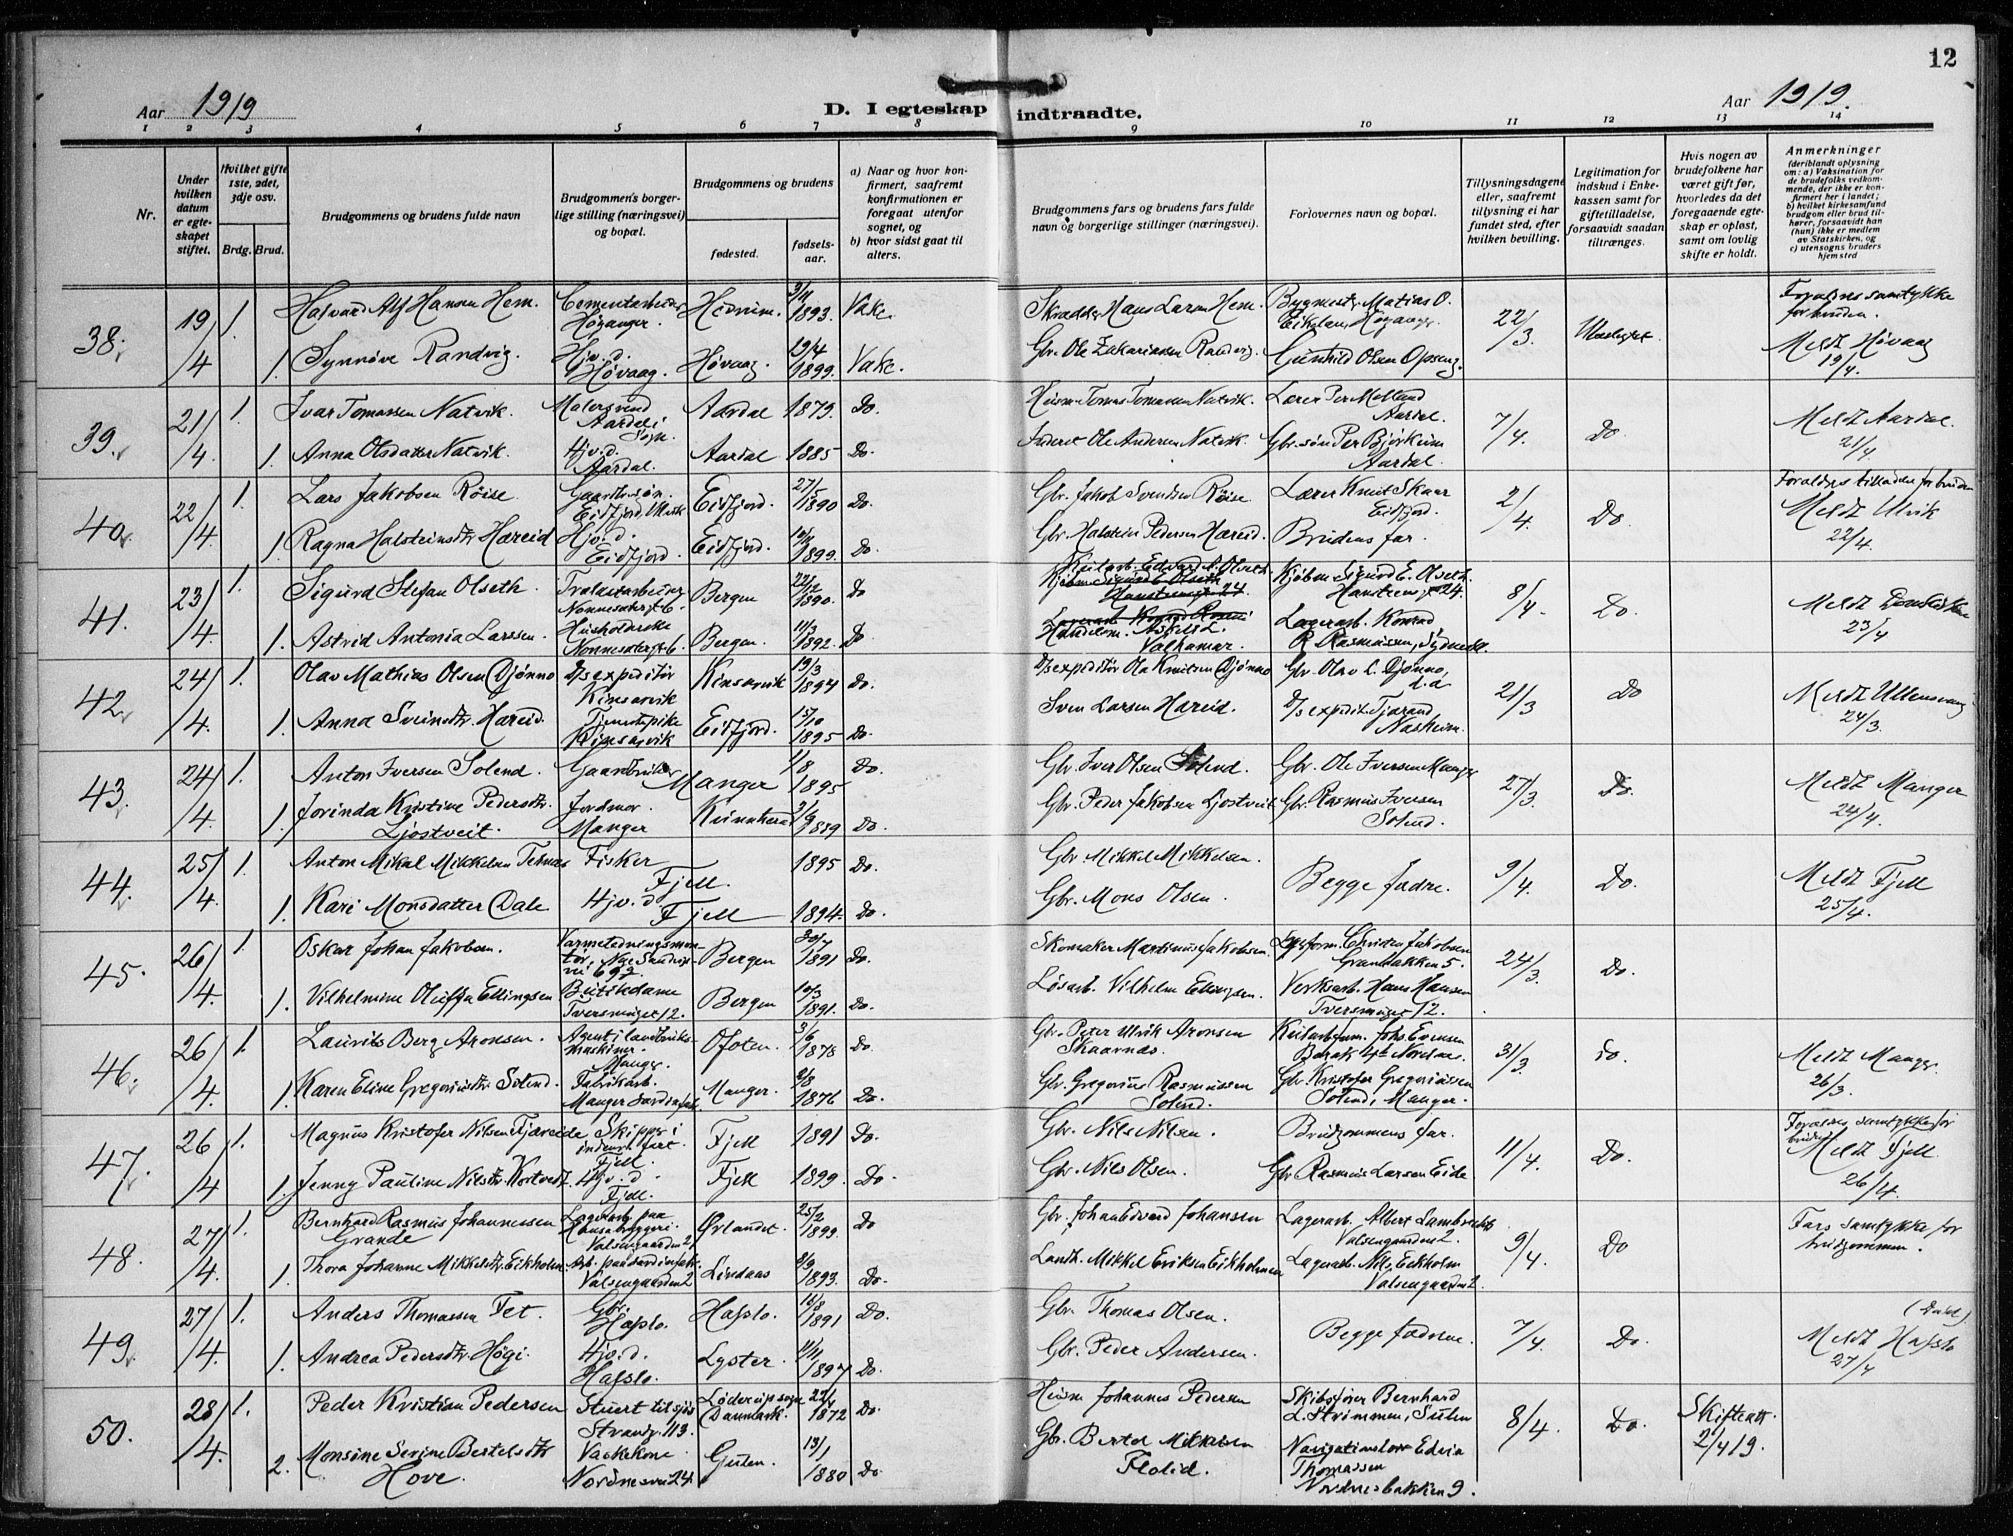 12
Aar 1919
D. I egteskap indtraadte.
Aar 1919.
1 2 3 4 5 6 7 8 9 10 11 12 13 14
Nr.
Under hvilken datum er egteskapet stiftet.
Hvilket gifte 1ste, 2det, 3dje osv.
Brdg. Brud.
Brudgommens og brudens fulde navn
Brudgommens borgerlige stilling (næringsvei) og bopæl.
Brudgommens og brudens
fødested.
fødselsaar.
a) Naar og hvor konfirmert, saafremt konfirmationen er foregaat utenfor sognet, og
b) hvor sidst gaat til alters.
Brudgommens fars og brudens fars fulde navn og borgerlige stillinger (næringsvei).
Forlovernes navn og bopæl.
Tillysningsdagene eller, saafremt tillysning ei har fundet sted, efter hvilken bevilling.
Legitimation for indskud i Enkekassen samt for giftetilladelse, forsaavidt saadan tiltrænges.
Hvis nogen av brudefolkene har været gift før, hvorledes da det foregaaende egteskap er opløst, samt om lovlig skifte er holdt.
Anmerkninger
(deriblandt oplysning om: a) Vaksination for de brudefolks vedkommende, der ikke er konfirmert her i landet; b) hvilket kirkesamfund brudgom eller brud tilhører, forsaavidt han (hun) ikke er medlem av Statskirken, og c) utensogns bruders hjemsted
38. 19/4 1. Halvard Alf Hansen Hem. Cementarbeider Høyanger. 3/11 1893. Vake. Skrædder Hans Larsen Hem. Bygmestr. Matias O. Eikeland, Høyanger. 22/3
Foraldres samtykke for bruden.
1. Synnøve Randvig. Hjv. d. Høvaag. Høvaag. 29/4 1899. Vake. Gbr. Ole Zakariassen Randvig. Gunhild Olsen
Meldt Høvaag 19/4.
39. 21/4 1. Ivar Tomassen Natvik. Malersvend Aardal i Sogn. Aardal 1879. Do. Husm. Tomas Tomassen Natvik. Lærer Per Midtland Aardal. 7/4. Do
1. Anna Olsdatter Natvik. Hjv. d. Aardal. Aardal 1885 Do. Inderst Ole Andersen Natvik. Gbr. søn Per Bjørkum Aardal.
Meldt Aardal. 21/4
40. 22/4. 1. Lars Jakobsen Røise Gaardbr. søn. Eidfjord, Ulvik Eidfjord. 27/5 1890 Do. Gbr. Jakob Svendsen Røise Lærer Knut Skaar Eidfjord. 2/4 Do.
Foraldres tilladen for bruden
1. Ragna Halsteinsdtr. Hæreid Hjv. d. Eidfjord. Eidfjord. 1899. Do. Gbr. Halstein Pedersen Hæreid. Brudens far.
Meldt Ulvik 22/4.
41. 23/4. 1. Sigurd Stefan Olseth. Nonnesetergt. 6. Bergen 22/12 1890. Do Edvard A. Olseth. Kjøbm. Sigurd E. Olseth Hansteensgt 24. 8/4. Do.
1. Astrid Antonia Larssen. Husholderske Nonnesetergt. 6 Bergen. 11/3 1892. Do Valhamar. Lagerarb. Konrad R. Rasmussen,
Meldt Domkirken 23/4
42. 24/4. 1. Olav Mathias Olsen Djønno D/s expeditør Kinsarvik Kinsarvik 19/3 1894 Do. D/s expeditør Ole Knutsen Djønno Gbr. Olav L. Djønno, d.d. 21/3 Do
1. Anna Sveinsdtr. Hæreid. Tjenestepike Kinsarvik Eidfjord. 15/10 1895 Do. Sven Larsen Hæreid. D/s expedit. Tjerand Naskeim.
Meldt Ullensvang 24/3.
43. 24/4. 1. Anton Iversen Solend. Gaardbruker Manger 1/8 1895 Do. Gbr. Iver Olsen Solend. Gbr. Ole Iversen Manger 27/3. Do.
1. Jorinda Kristine Pedersdtr. Ljostveit. Jordmor. Manger Kvinnherad 1889 Do. Gbr. Peder Jakobsen Ljostveit Gbr. Rasmus Iversen Solend.
Meldt Manger 24/4.
44. 25/4. 1. Anton Mikal Mikkelsen Fisker Fjell. 1895 Do. Gbr. Mikkel Mikkelsen. Begge fædre. 9/4. Do.
1. Kari Monsdatter Dale Hjv. d. Fjell 1894. Do. Gbr. Mons Olsen.
Meldt Fjell 25/4.
45. 26/4. 1. Oskar Johan Jakobsen. Varmeledningsmontør, Nye Sandviksvei 69 2. Bergen 30/7 1891 Do. Skomaker Martinius Jakobsen Christen Jakobsen Granbakken 5. 24/3. Do.
1. Vilhelmine Oluffa Ellingsen Butikdame Tversmuget 12. Bergen 10/3 1891. Do. Løsarb. Vilhelm Ellingsen. Verksarb. Hans Hansen Tversmuget 12.
46. 26/4. 1. Laurits Berg Aronsen. Agent i landbruksmaskiner. Manger. Ofoten. 3/6 1878 Do. Gbr. Peter Ulrik Aronsen Skaarnes. Johs Evensen 31/3. Do.
1. Karen Eline Gregoriusdtr. Solend. Fabrikarb. Manger Manger. 2/8 1876 Do. Gbr. Gregorius Rasmussen Solend. Gbr. Kristofer Gregoriussen Solend, Manger.
Meldt Manger. 26/3.
47. 26/4 1. Magnus Kristofer Nilsen Fjæreide Skipper i indenr. fart. Fjell. Fjell 1891 Do. Gbr. Nils Nilsen. Brudgommens far. 11/4. Do.
Foraldres samtykke for bruden
1. Jenny Pauline Nilsdtr. Kortvedt. Hjv. d. Fjell. Fjell 1899. Do. Gbr. Nils Olsen. Gbr. Rasmus Larsen Eide
Meldt Fjell 26/4.
48. 27/4. 1. Bernhard Rasmus Johannessen Grande Lagerarb. paa Hansabryggeri. Valsengaarden 2, Ørlandet. 25/2 1899. Do Gbr. Johan Edvard Johansen Lagerarb. Albert Lambrechts Valsengaarden 2. 9/4. Do
1. Thora Johanne Mikkelsdtr. Eikholmen Arb. paa sardinfabr. Valsengaarden 2 Lindaas 8/9 1893. Do. Landh. Mikkel Eriksen Eikholmen Lagerarb. Nils Eikholm Valsengaarden 2.
Fars samtykke for brudgommen.
49. 27/4. 1. Anders Thomassen Fet. Gbr. Hafslo. Hafslo. 16/8 1891 Do. Gbr. Thomas Olsen. Begge fædrene. 7/4. Do.
1. Andrea Pedersdtr. Høgi. Hjv. d. Hafslo. Lyster. 1897 Do. Gbr. Peder Andersen.
Meldt Hafslo 27/4
50. 28/4. 1. Peder Kristian Pedersen Stuert til sjøs Strandg. 113. Løderup sogn Danmark. 1872 Do. Husm Johannes Pedersen Skibsfører Bernhard L. Strømmen, Sulen 8/4. Do. Skifteatt. 2/4 19.
2. Monsine Serine Bertelsdtr Hove. Vaskekone Nordnesvei 24 Gulen. 13/1 1880 Do. Gbr. Bertel Mikkelsen Flolid. Navigationslærer Edvin Thomassen Nordnesbakken 9.